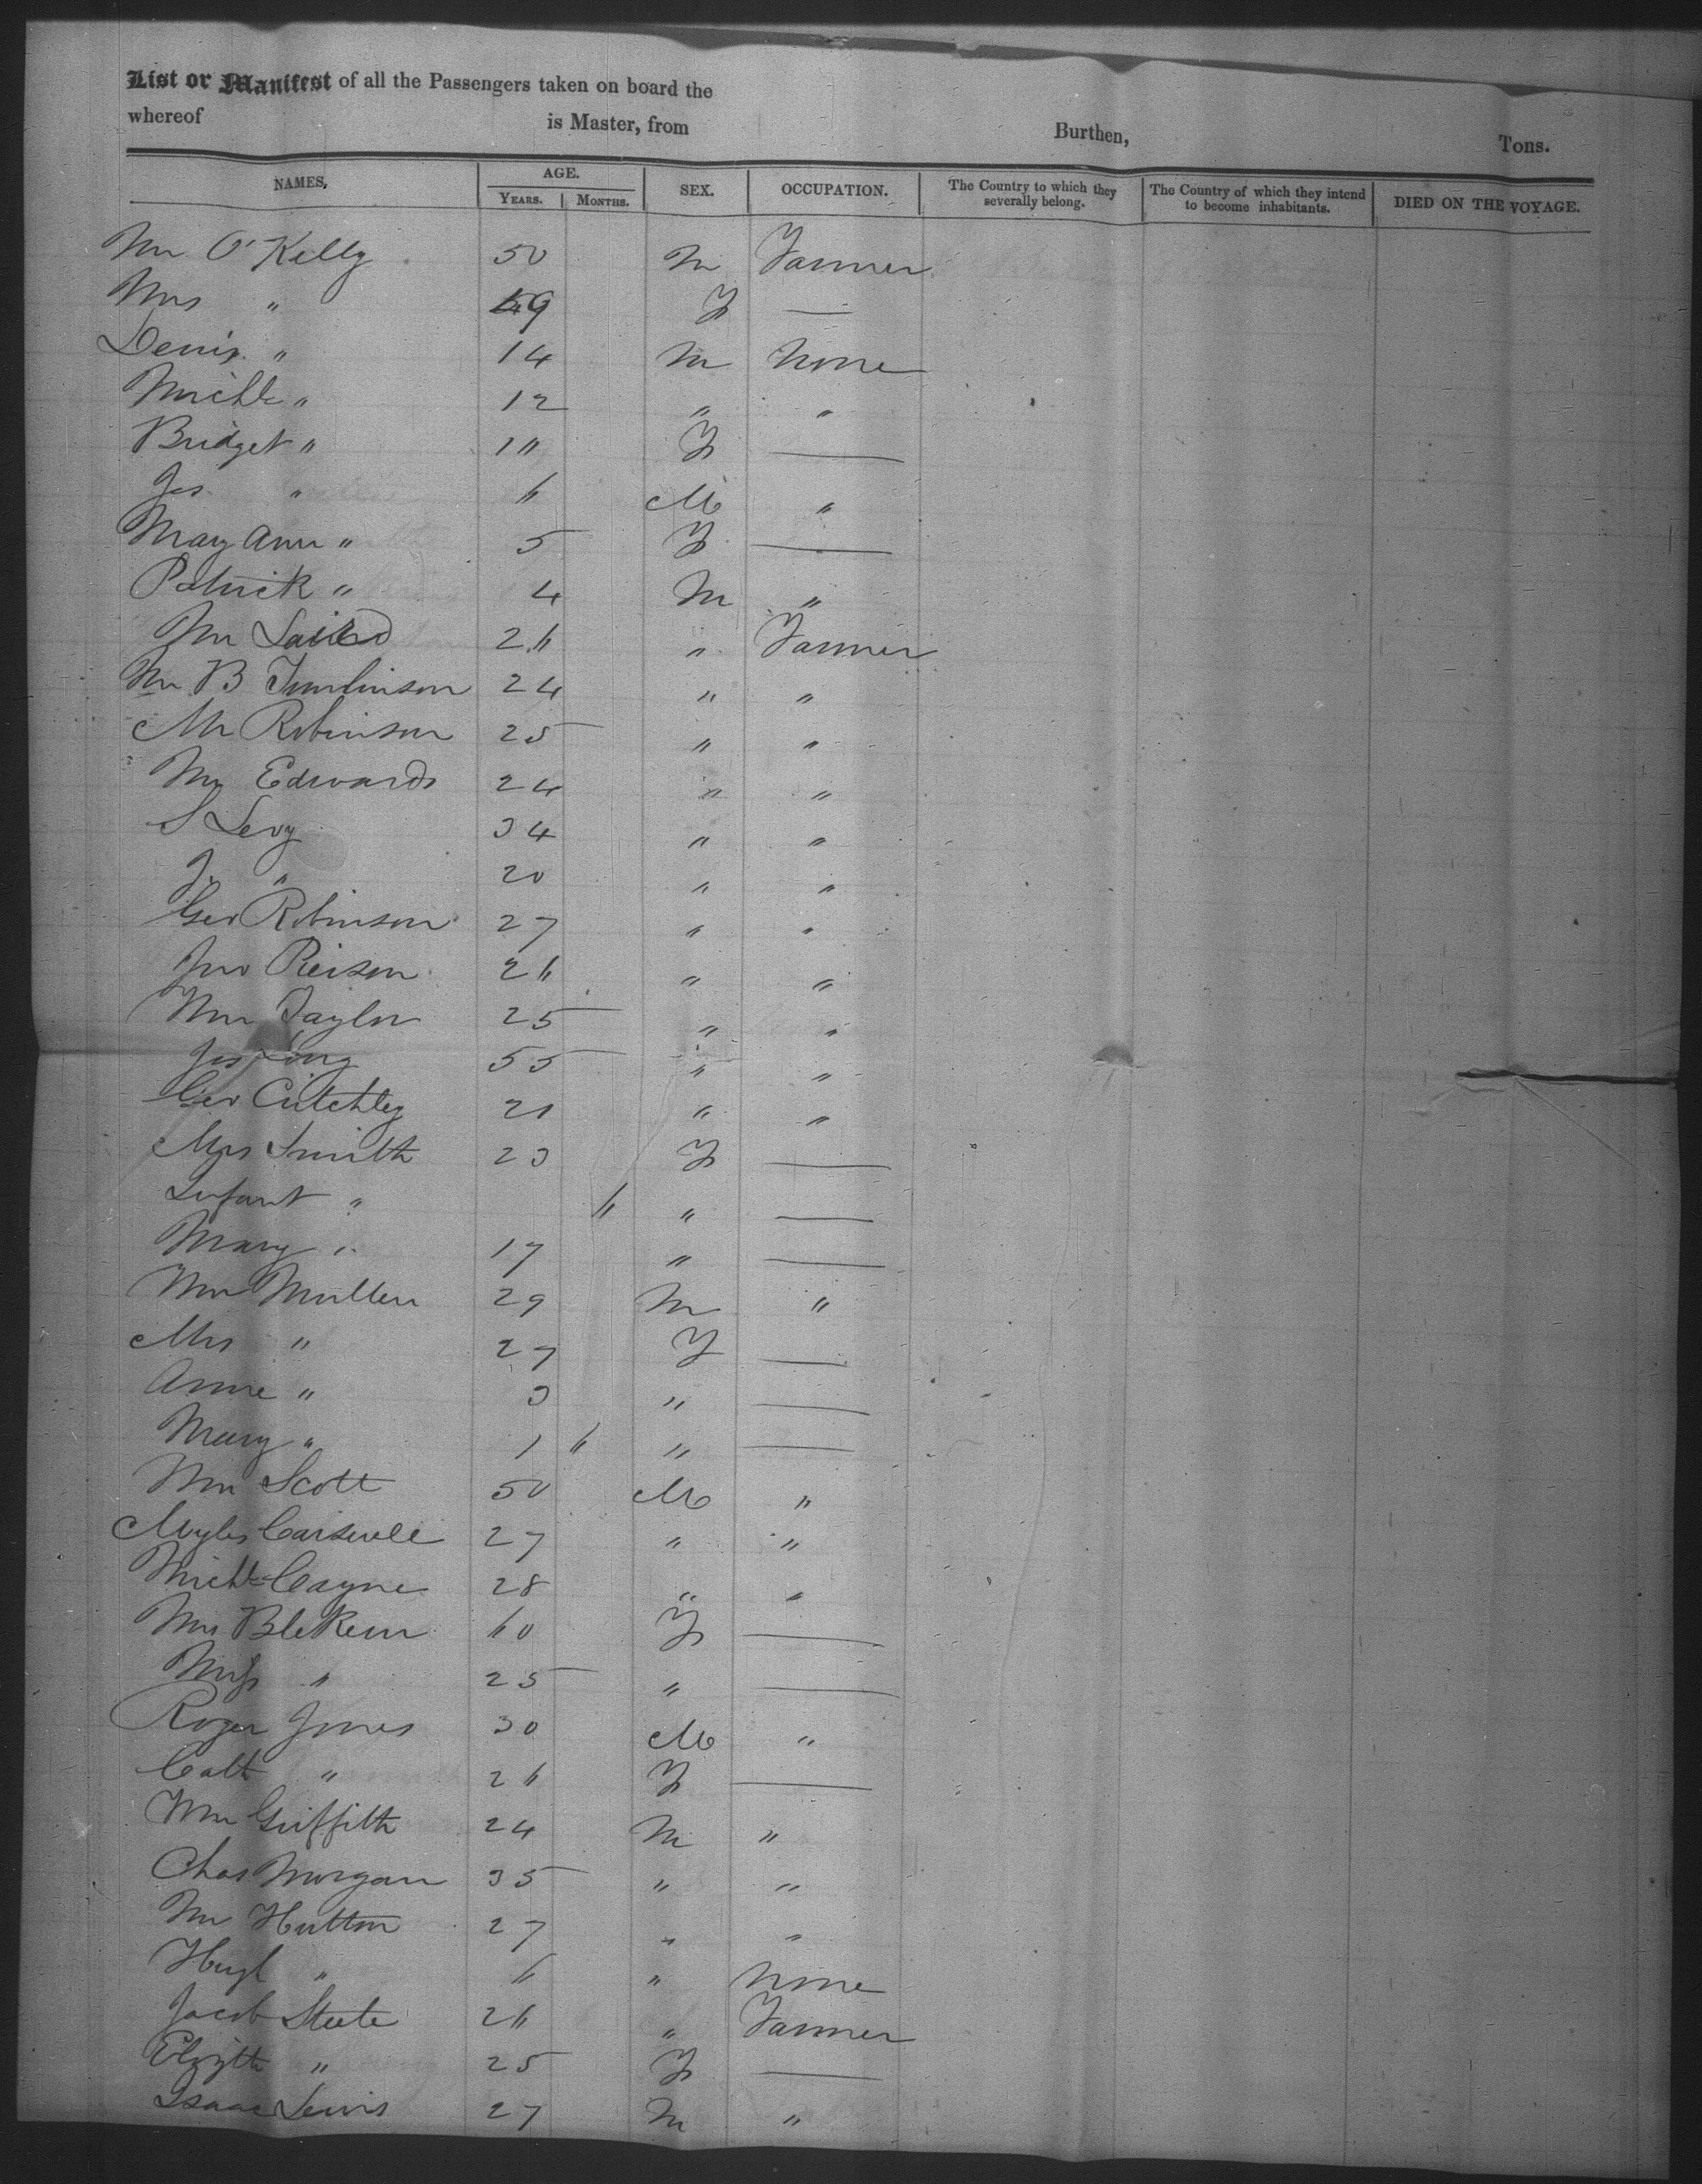 List or Manifest of all the Passengers taken on board the
whereof is Master, from Burthen, Tons.
NAMES, AGE. YEARS. MONTHS. SEX. OCCUPATION. The Country to which they severally belong. The Country of which they intend to become inhabitants. DIED ON THE VOYAGE.
Mr O'Kelly 50 M Farmer
Mrs " 49 F —
Denis " 14 M None
Michl " 12 " "
Bridget " 10 F —
Jas " 6 M "
Mary Ann " 5 F —
Patrick " 4 M "
Wm Laird 26 " Farmer
Mr B Tomlinson 24 " "
Mr Robinson 25 " "
Mr Edwards 24 " "
S Levy 34 " "
J. " 20 " "
Geo Robinson 27 " "
Jno Pierson 26 " "
Wm Taylor 25 " "
Jas Long 55 " "
Geo Critchley 21 " "
Mrs Smith 23 F —
Infant " 6 " —
Mary " 17 " —
Wm Mullen 29 M "
Mrs " 27 F —
Anne " 3 " —
Mary " 1 6 " —
Wm Scott 50 M "
Myles 27 " "
Michl Cayne 28 " "
Mrs 60 F —
Miss " 25 " —
Roger Jones 30 M "
Cath " 26 F —
Wm Griffith 24 M "
Chas Morgan 35 " "
Wm Hutton 27 " "
Hugh " 6 " None
Jacob Steele 26 " Farmer
Elizth " 25 F —
Isaac Lewis 27 M "